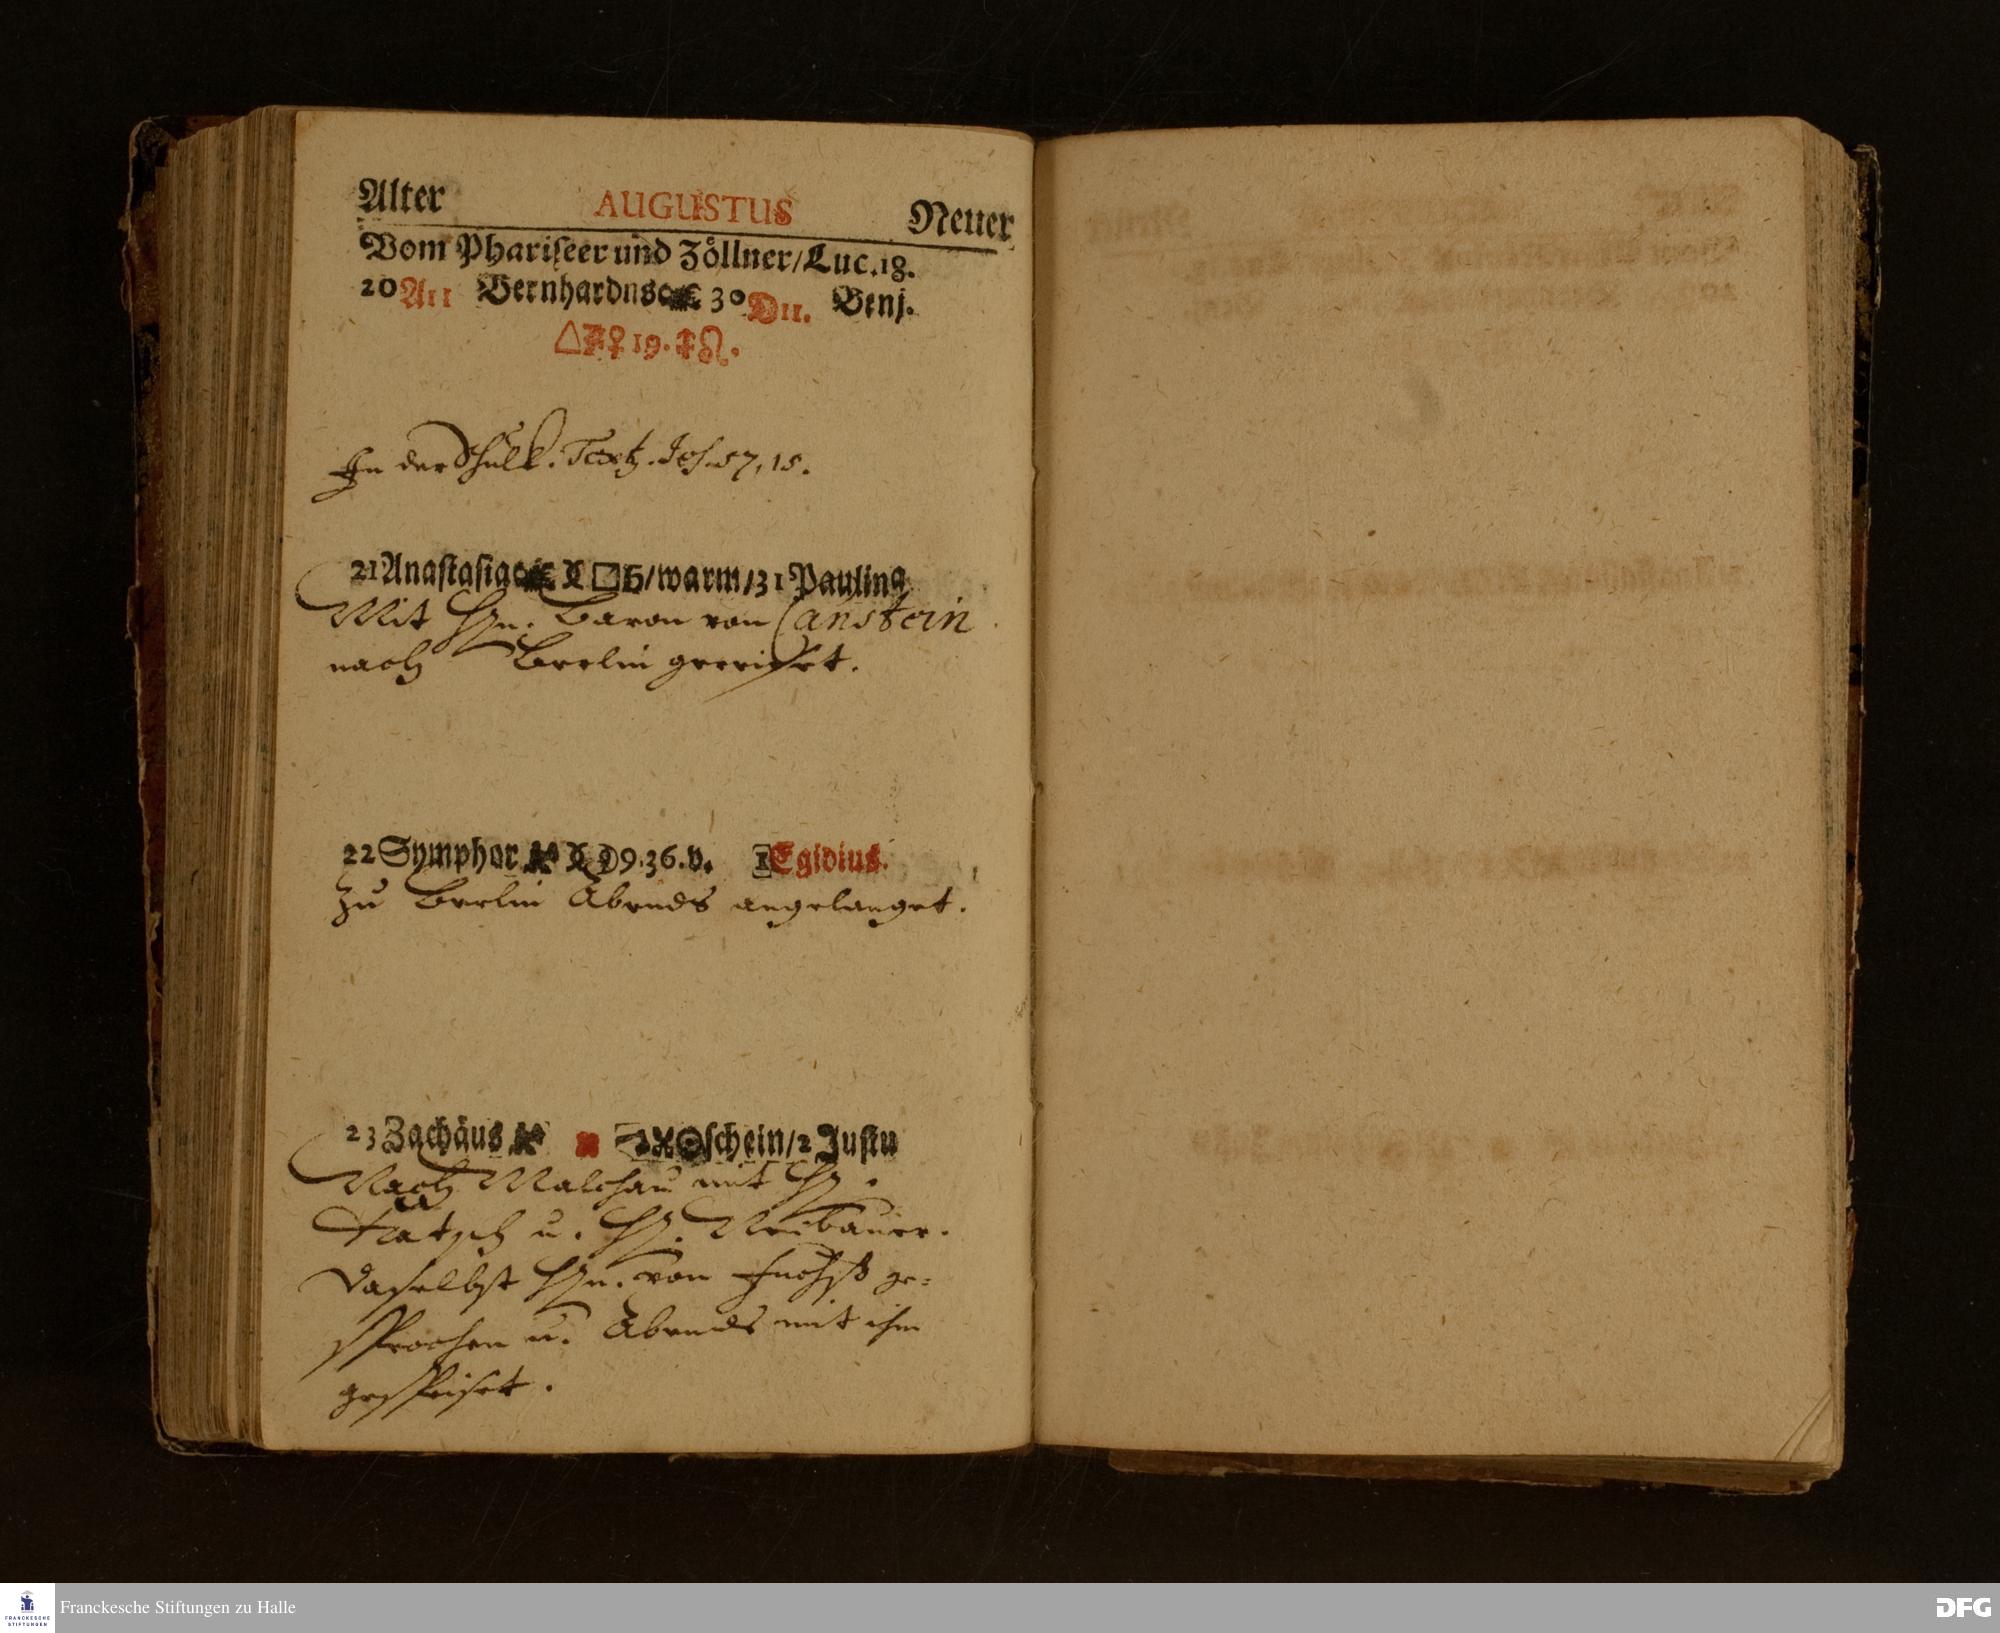 Alter AUGUSTUS Neuer
Vom Phariseer und Zöllner/Luc.18.
20 A11 Bernhardus 30 D11. Benj.
△ ♀ 19. ☊.
In der Schul K. Text. Jes. 57, 15.
21 Anastasia □ ♄/warm/31 Paulina
Mit Hn. Baron von Canstein
nach Berlin gereiset.
22 Symphor. 9.36.v. 1 Egidius.
Zu Berlin Abends angelanget.
23 Zachäus schein/2 Justu
Nach Malchau mit H.
u. H. Neubauer.
Daselbst Hn. von Fuchß ge-
sprochen u. Abends mit ihm
gespeiset.
Franckesche Stiftungen zu Halle
FRANCKESCHE
STIFTUNGEN
DFG